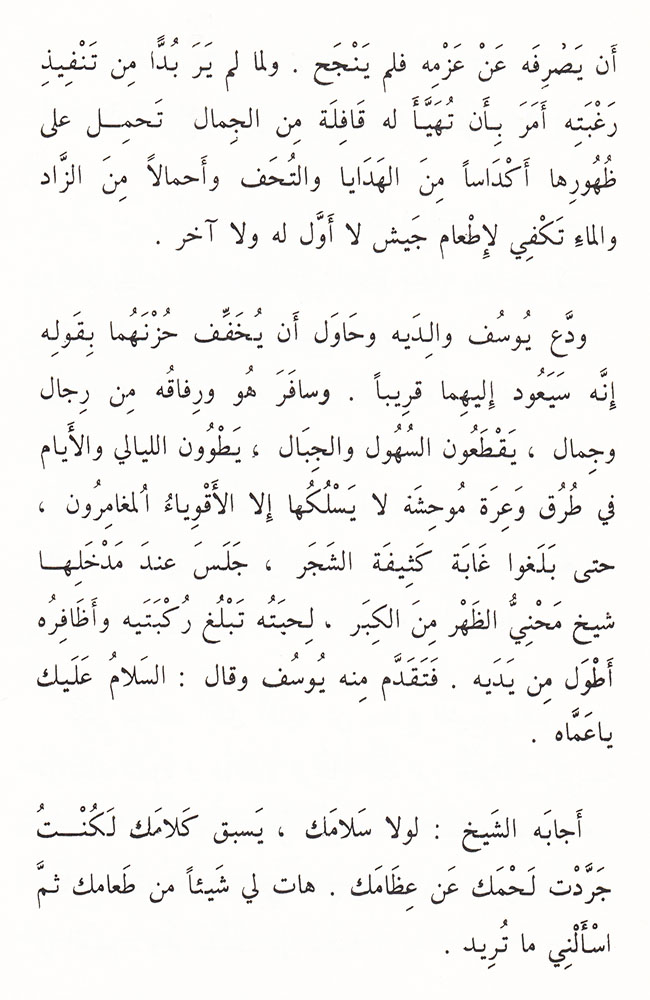 أَن يَصْرِفَه عَنْ عَزْمِه فلم يَنْجَح . ولما لم يَرَ بُدًّا مِن تَنْفِيذِ
رَغْبَتِه أَمَرَ بِأَن تُهَيَّأَ له قَافِلَة مِن الجِمال تَحمِل على
ظُهُورِها أَكْدَاساً مِنَ الهَدَايا والتُحَف وأَحمالاً مِنَ الزَّاد
والماءِ تَكْفِي لإِطْعام جَيش لا أَوَّل له ولا آخر .
ودَّع يُوسُف والِدَيه وحَاوَل أَن يُخَفِّف حُزْنَهُما بِقَولِه
إِنَّه سَيَعُود إِليهِما قرِيباً . وسافَرَ هُو ورِفاقُه مِن رِجال
وجِمال ، يَقْطَعُون السُهُول والجِبَال ، يَطْوُون الليالي والأَيام
في طُرُق وَعِرَة مُوحِشَة لا يَسْلُكُها إِلا الأَقْوِياءُ المُغامِرُون ،
حتى بَلَغوا غَابَة كَثِيفَة الشَجَر ، جَلَسَ عندَ مَدْخَلِها
شيخ مَحْنِيُّ الظَهْر مِنَ الكِبَر . لِحيَتُه تَبْلُغ رُكْبَتَيه وأَظَافِرُه
أَطْوَل مِن يَدَيه . فَتَقَدَّم مِنه يُوسُف وقال : السَلامُ عَلَيك
ياعَمَّاه .
أَجابَه الشَيخ : لولا سَلامَك ، يَسبق كَلامَك لَكُنْتُ
جَرَّدْت لَحْمَك عَن عِظَامَك . هات لي شَيئاً من طَعامك ثمَّ
اسْأَلْنِي ما تُرِيد .